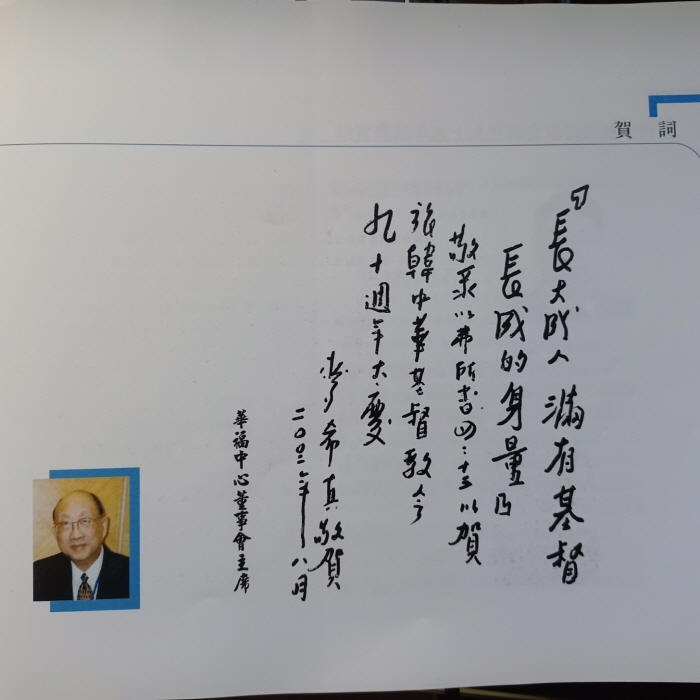 賀 詞
『長大成人 滿有基督
長成的身量』
敬录以弗所書四:十三以賀
旅韓中華基督教会
九十週年大慶
希真敬賀
二〇〇二年八月
華福中心董事會主席